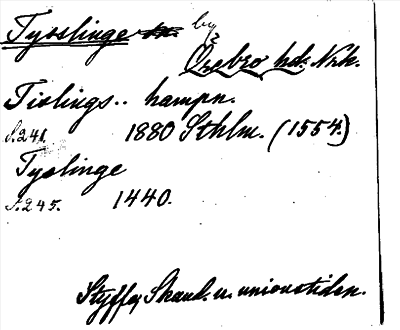 Tysslinge sn. by
Örebro hd. Nrk.
Tislings.. hampn.
S. 241. 1880 Sthlm. (1554.)
Tyslinge
S. 245. 1440.
Styffe, Skand. u. unionstiden.